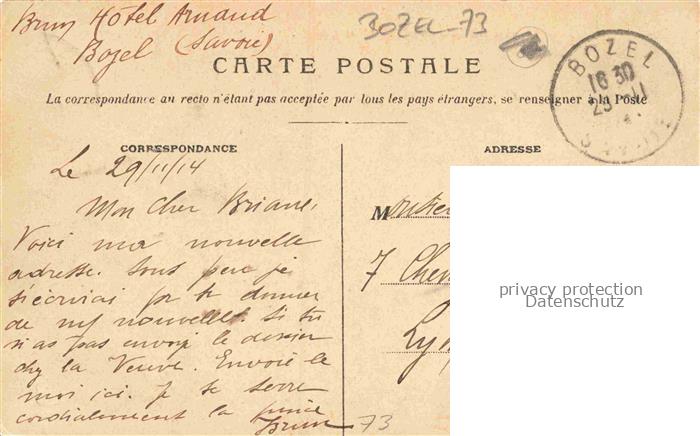 Brun Hôtel Arnaud
Bozel (Savoie)
BOZEL-73
CARTE POSTALE
La correspondance au recto n'étant pas acceptée par tous les pays étrangers, se renseigner à la Poste
BOZEL
16 30
29 11
CORRESPONDANCE
Le 29/11/14
Mon Cher Briane,
Voici ma nouvelle
adresse. Sous peu je
t'écrirai pr te donner
de mes nouvelles. Si tu
n'as pas envoyé le dessin
chez la Veuve. Envoie-le
moi ici. Je te serre
cordialement la pince
Brun
73
ADRESSE
M
7 Che
Ly
privacy protection
Datenschutz